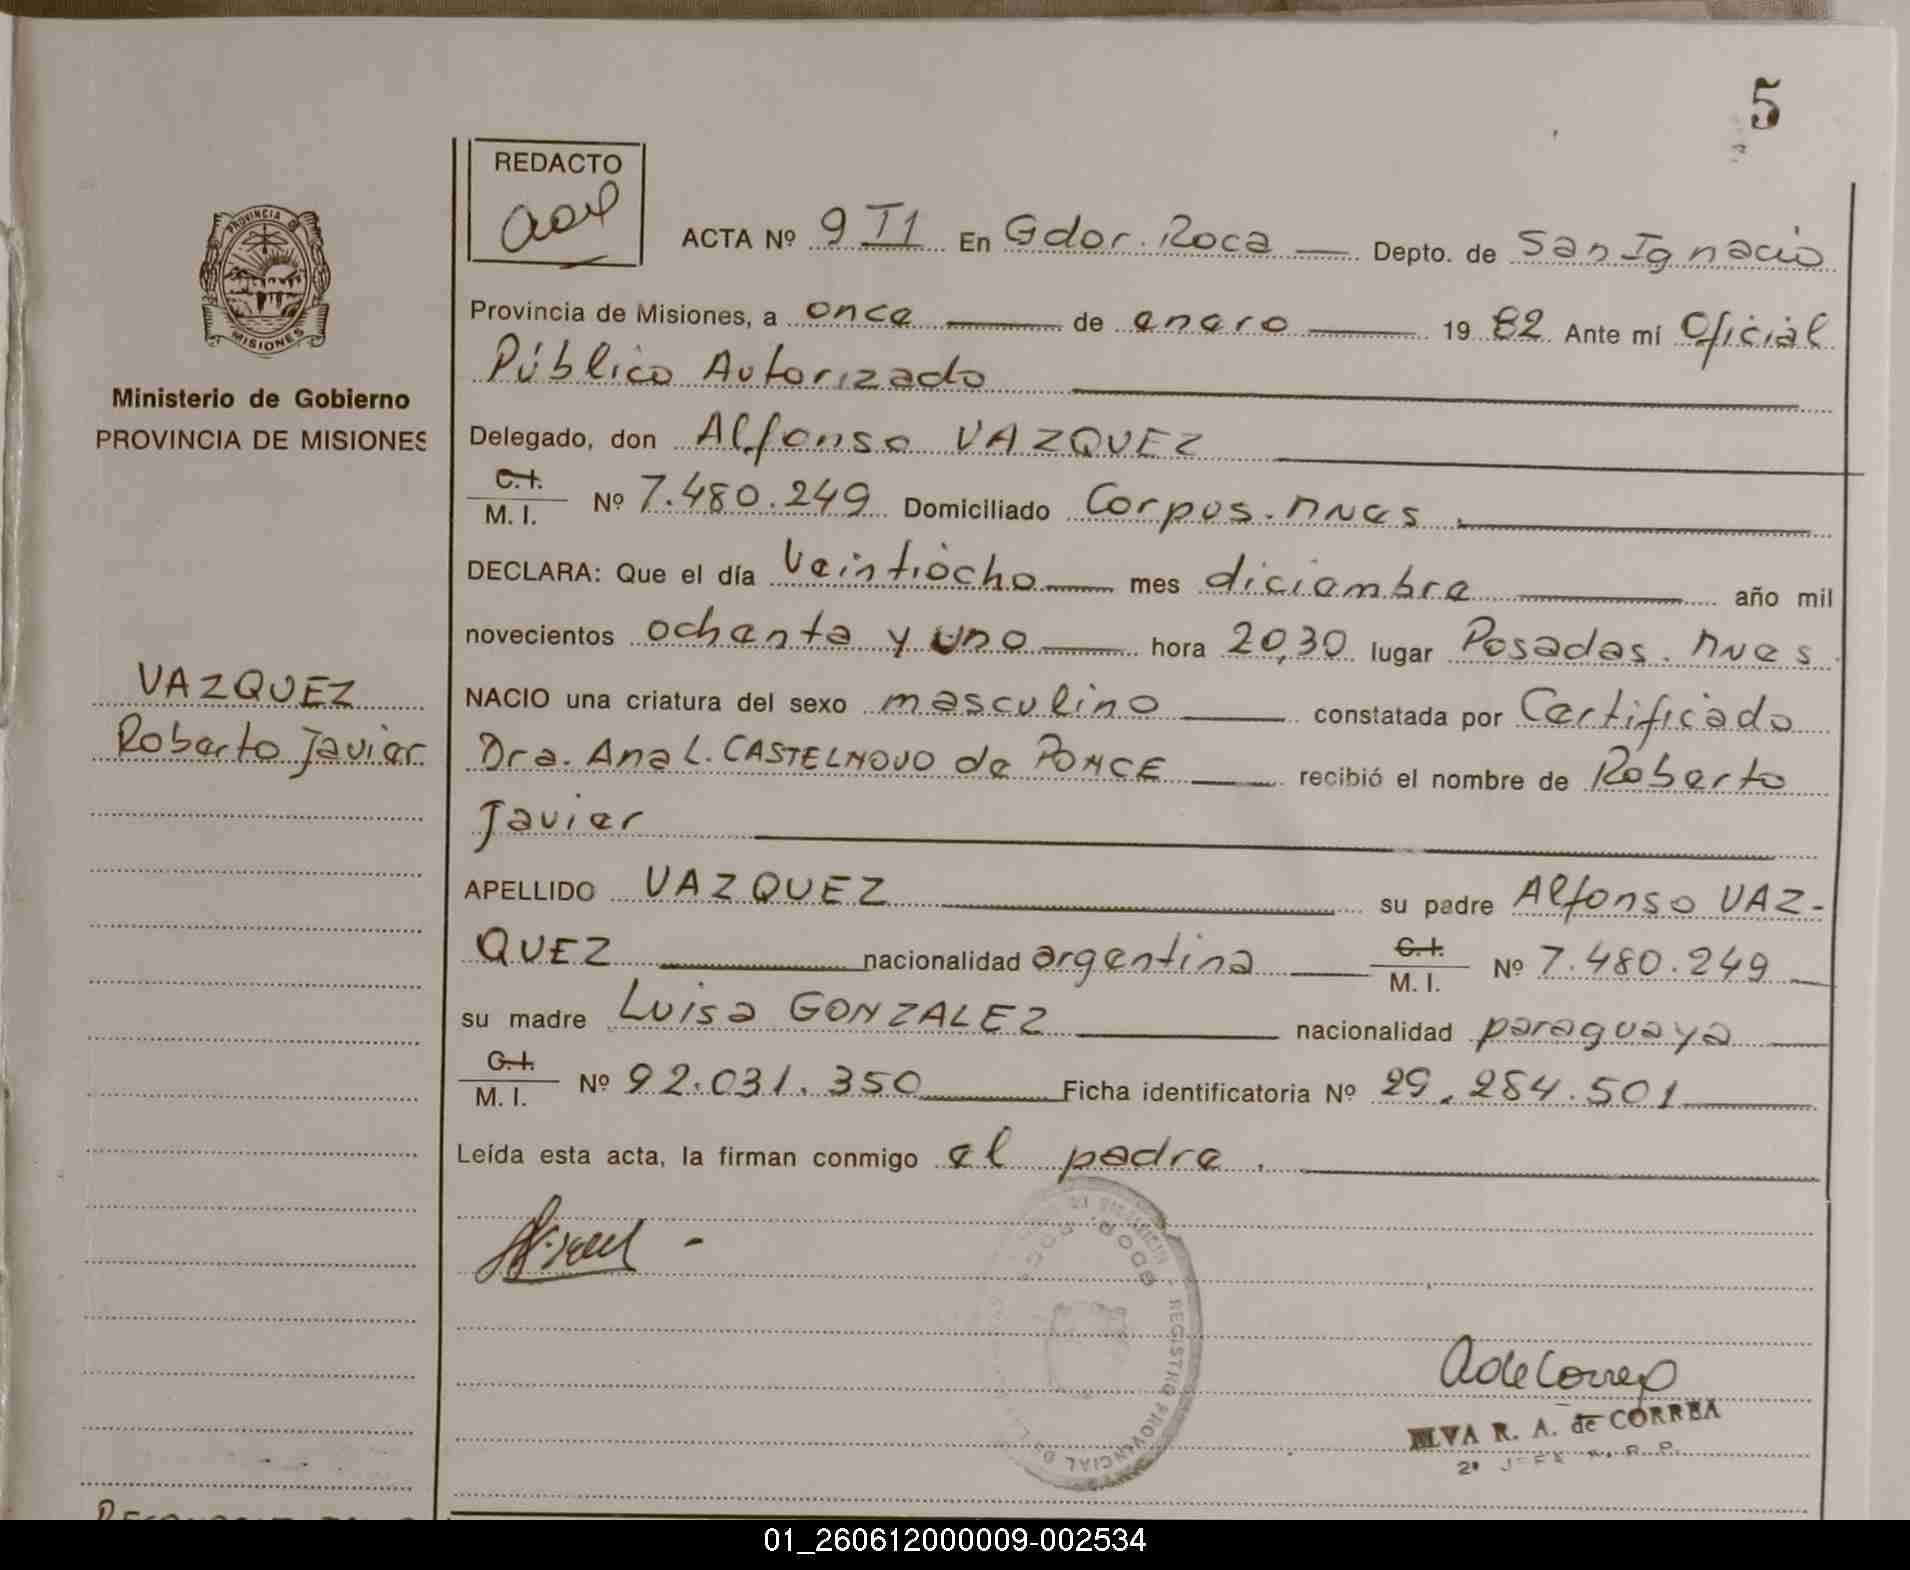 5
REDACTO
PROVINCIA DE
MISIONES
ACTA Nº 9 T1 En Gdor. Roca Depto. de San Ignacio
Provincia de Misiones, a once de enero 1982 Ante mí Oficial
Público Autorizado
Ministerio de Gobierno
PROVINCIA DE MISIONES
Delegado, don Alfonso VAZQUEZ
C.I.
M. I. Nº 7.480.249 Domiciliado Corpus. Mnes.
DECLARA: Que el día Veintiocho mes diciembre año mil
novecientos ochenta y uno hora 20,30 lugar Posadas. Mnes.
VAZQUEZ
Roberto Javier
NACIO una criatura del sexo masculino constatada por Certificado
Dra. Ana L. CASTELNOVO de PONCE recibió el nombre de Roberto
Javier
APELLIDO VAZQUEZ su padre Alfonso VAZ-
QUEZ nacionalidad argentina C.I.
M. I. Nº 7.480.249
su madre Luisa GONZALEZ nacionalidad paraguaya
C.I.
M. I. Nº 92.031.350 Ficha identificatoria Nº 29.284.501
Leída esta acta, la firman conmigo el padre.
REGISTRO PROVINCIAL DE
GDOR. ROCA
AdeCorrea
ELVA R. A. de CORREA
01_260612000009-002534